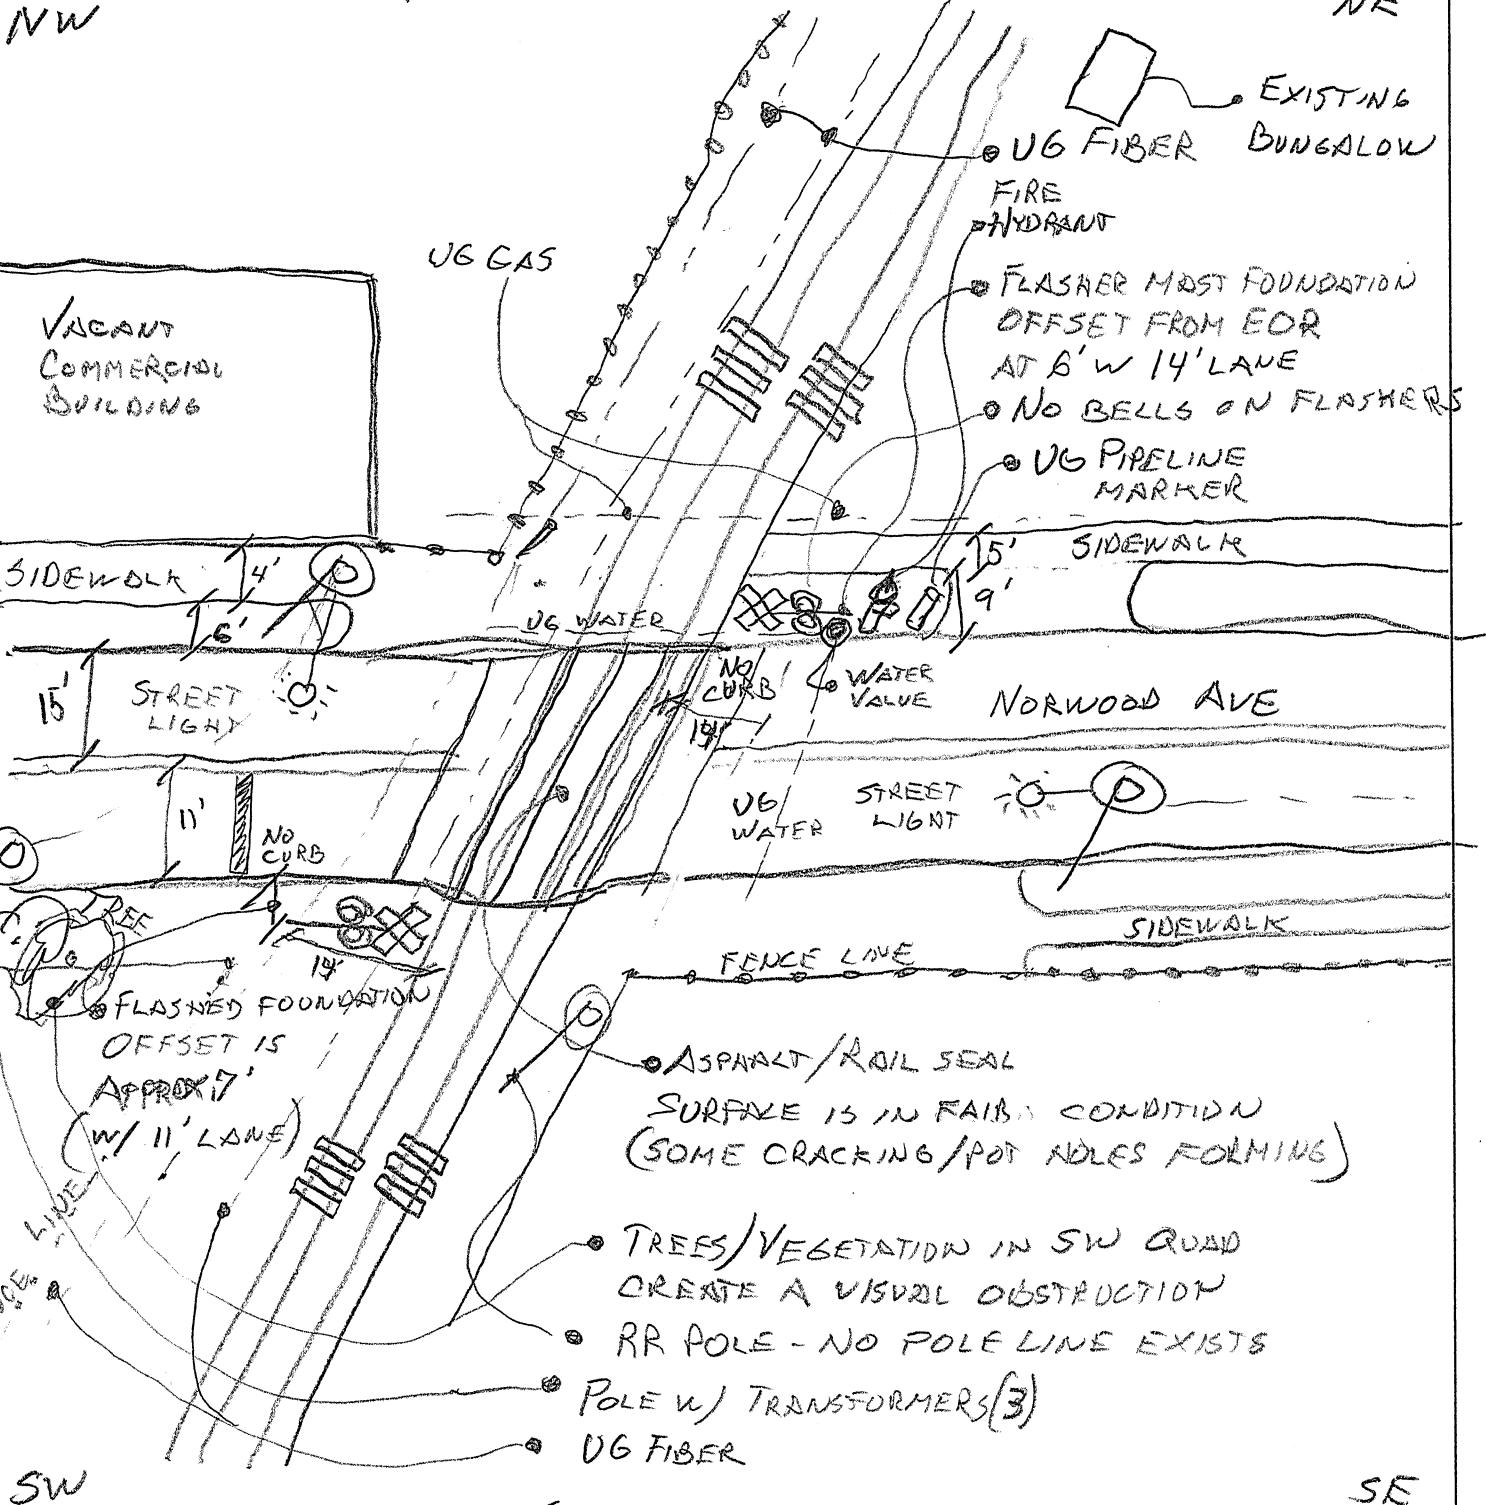 NW
NE
EXISTING
BUNGALOW
UG FIBER
FIRE
HYDRANT
UG GAS
FLASHER MAST FOUNDATION
OFFSET FROM EOR
AT 6' W 14' LANE
NO BELLS ON FLASHERS
UG PIPELINE
MARKER
VACANT
COMMERCIAL
BUILDING
SIDEWALK
4'
6'
5'
SIDEWALK
9'
UG WATER
NO
CURB
14'
WATER
VALUE
NORWOOD AVE
15'
STREET
LIGHT
11'
NO
CURB
UG
WATER
STREET
LIGHT
TREE
14'
SIDEWALK
FENCE LINE
FLASHED FOUNDATION
OFFSET IS
APPROX 7'
(W/ 11' LANE)
LINE
ASPHALT/RAIL SEAL
SURFACE IS IN FAIR CONDITION
(SOME CRACKING/POT HOLES FORMING)
TREES/VEGETATION IN SW QUAD
CREATE A VISUAL OBSTRUCTION
RR POLE - NO POLE LINE EXISTS
POLE W/ TRANSFORMERS(3)
UG FIBER
SW
SE